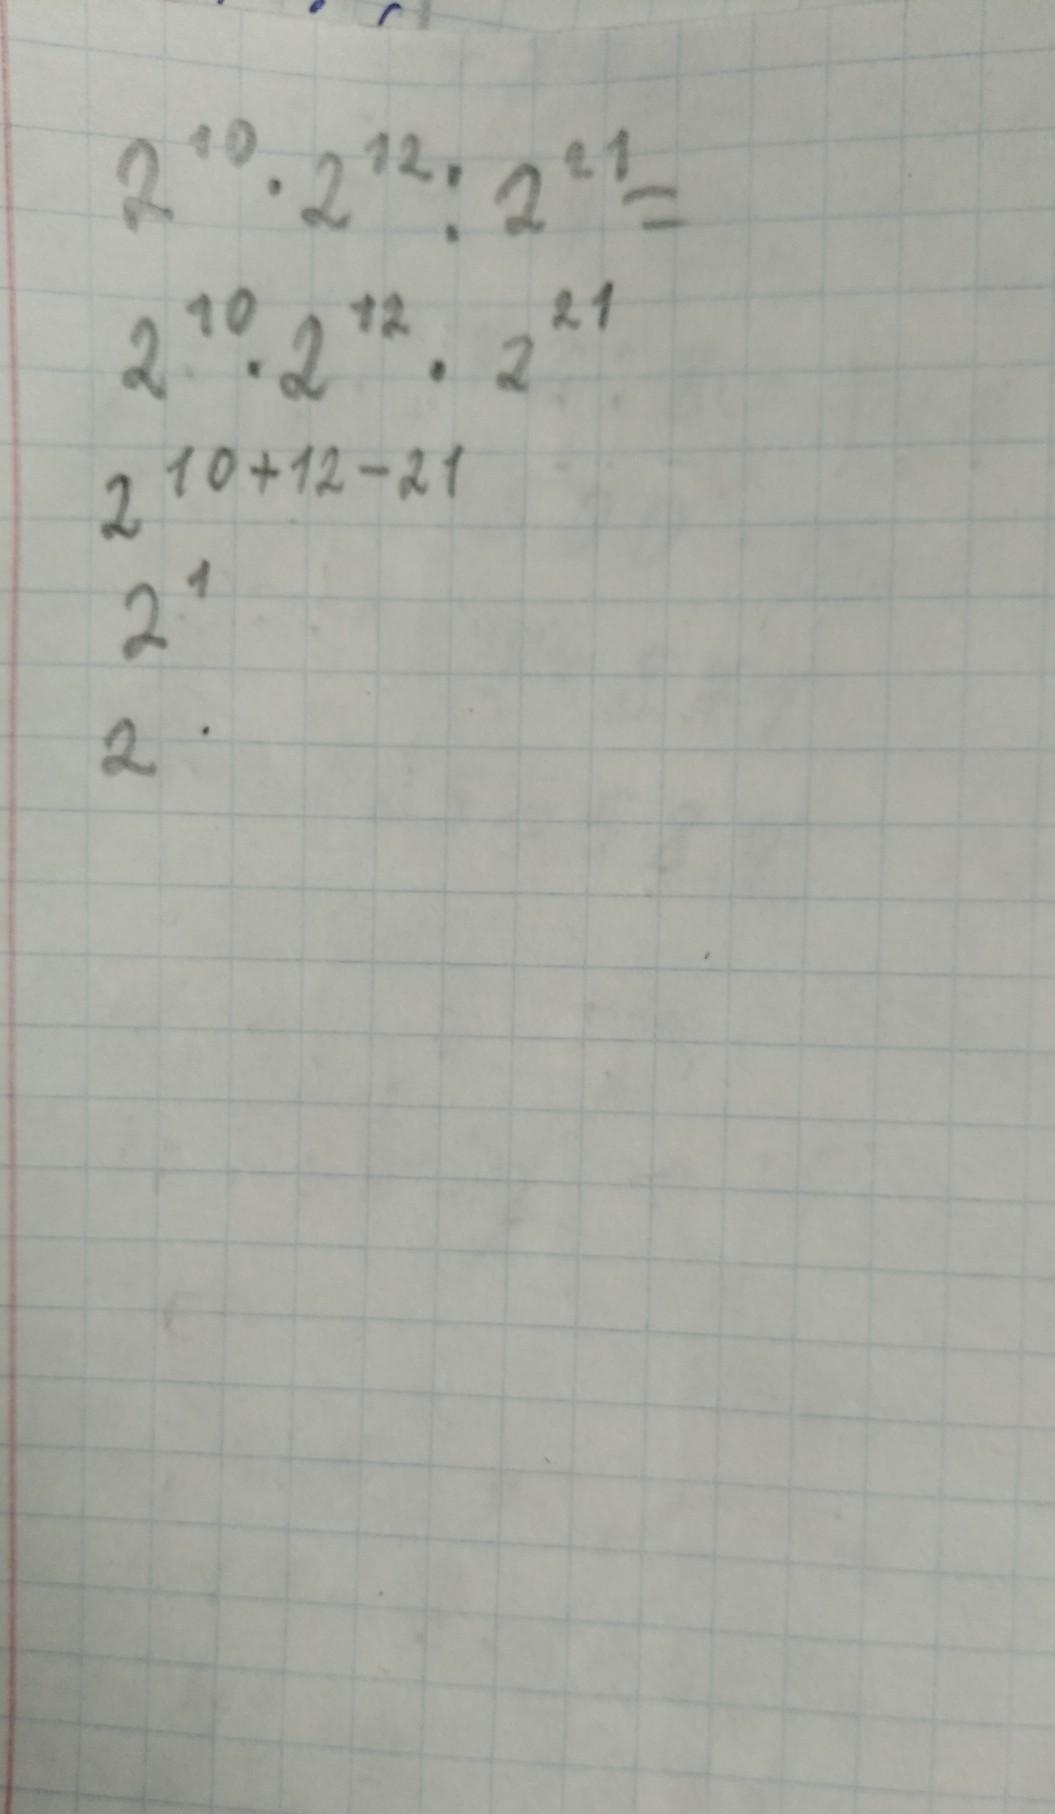 2¹⁰ · 2¹² : 2²¹ =
2¹⁰ · 2¹² · 2²¹
2¹⁰⁺¹²⁻²¹
2¹
2